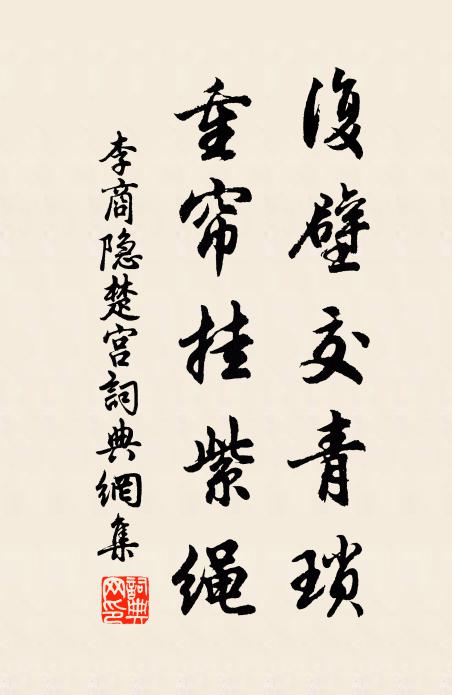 復壁交青瑣
重帘挂紫绳
李商隐楚宫詞典網集
詞典網印